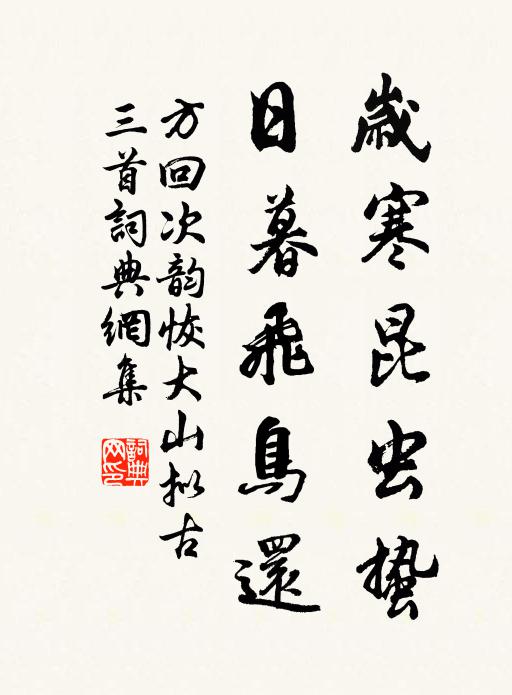 歲寒昆虫蟄
日暮飛鳥還
方回次韵恢大山拟古
三首詞典網集
詞典網印